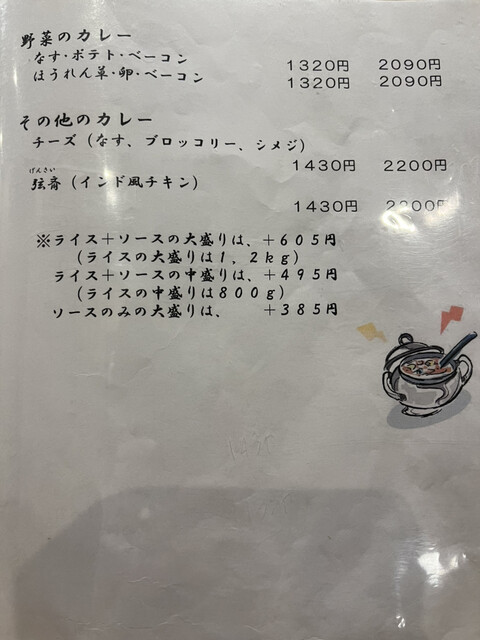 野菜のカレー
なす・ポテト・ベーコン 1320円 2090円
ほうれん草・卵・ベーコン 1320円 2090円
その他のカレー
チーズ（なす、ブロッコリー、シメジ）
1430円 2200円
げんさい
弦斎（インド風チキン）
1430円 2200円
※ライス＋ソースの大盛りは、＋６０５円
（ライスの大盛りは１，２ｋｇ）
ライス＋ソースの中盛りは、＋４９５円
（ライスの中盛りは８００ｇ）
ソースのみの大盛りは、 ＋３８５円